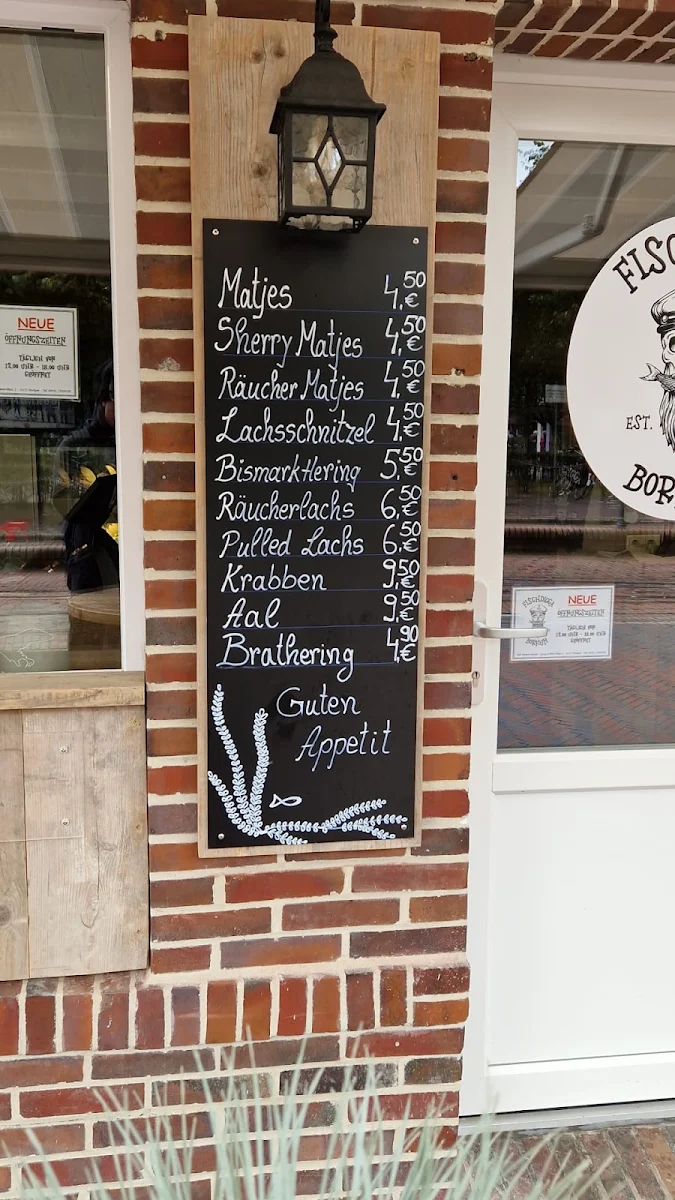 Matjes 4,50 €
Sherry Matjes 4,50 €
Räucher Matjes 4,50 €
Lachsschnitzel 4,50 €
Bismark Hering 5,50 €
Räucherlachs 6,50 €
Pulled Lachs 6,50 €
Krabben 9,50 €
Aal 9,50 €
Brathering 4,90 €
Guten
Appetit
NEUE
ÖFFNUNGSZEITEN
TÄGLICH VON
12.00 UHR - 18.00 UHR
GEÖFFNET
EST.
NEUE
ÖFFNUNGSZEITEN
TÄGLICH VON
12.00 UHR - 18.00 UHR
GEÖFFNET